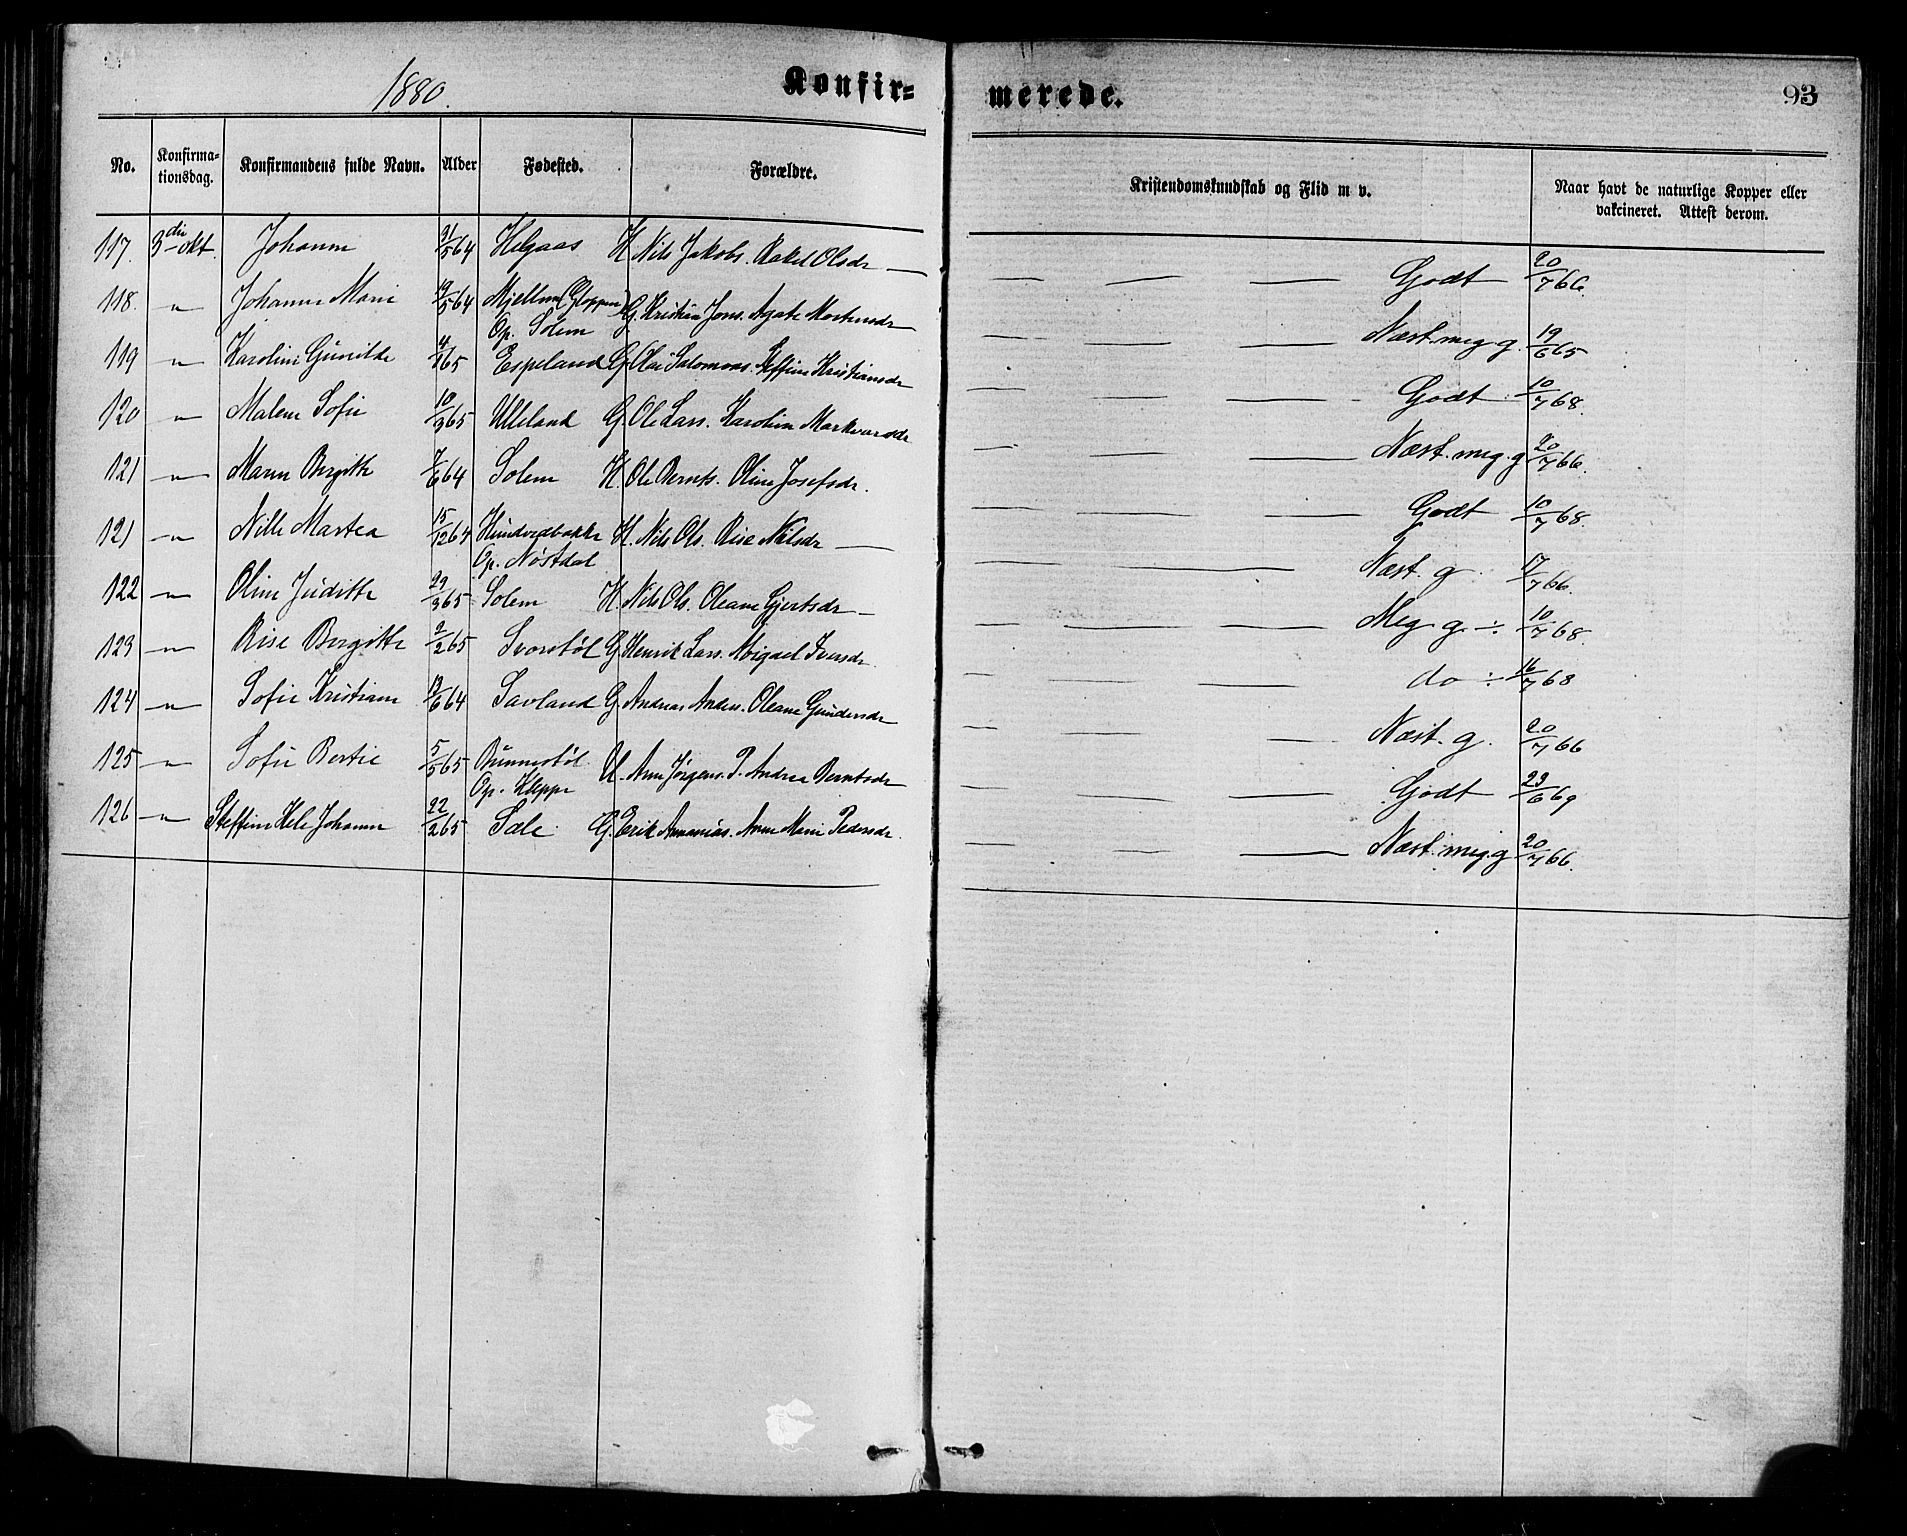 1880.
Konfir=
merede.
93
No. Konfirma-tionsdag. Konfirmandens fulde Navn. Alder Fødested. Forældre. Kristendomskundskab og Flid m v. Naar havt de naturlige Kopper eller vakcineret. Attest derom.
117. 3die okt. Johanne 31/5 64 Helgaas H. Nils Jakobs. Rakel Olsdr — — — — Godt 20/7 66.
118. -"- Johanne Marie 19/5 64 Mjellem (Gloppen) G. Kristian Jons. Agate Mortensdr — — — Næst. meg. g. 19/6 65
Op. Solem
119 -"- Karoline Gunilde 4/1 65 Espeland G. Ole Salomons. Steffine Kristiansdr — — — Godt 10/7 68.
120 -"- Malene Sofie 10/3 65 Ulleland G. Ole Lars. Karoline Markvardsdr — — — Næst. meg. g 20/7 66.
121 -"- Maren Bergitte 7/6 64 Solem H. Ole Bernts. Oline Josefsdr. — — — Godt 10/7 68.
121 -"- Nille Martea 15/12 64 Hundvedbakke H. Nils Ols. Rise Nilsdr — — — Næst. g. 17/7 66.
Op. Nøstdal
122 -"- Oline Juditte 29/3 65 Solem H. Nils Ols. Oleane Gjertsdr — — — — Meg g. ÷ 10/7 68.
123 -"- Rise Bergitte 2/2 65 Svorstøl G. Henrik Lars. Abigael Iversdr. — — — do ÷ 16/7 68
124 -"- Sofie Kristiane 12/6 64 Savland G. Andreas Anders. Oleane Gundersdr — — Næst. g. 20/7 66
125 -"- Sofie Bertie 5/5 65 Brunnestøl U. Arne Jørgens. P. Andrea Berntsdr — — — Godt 23/6 69
Op. Kleppe
126 -"- Steffine Hele Johanne 22/2 65 Sæle G. Erik Ananias. Anne Marie Pedersdr. — — — Næst. meg. g 20/7 66.